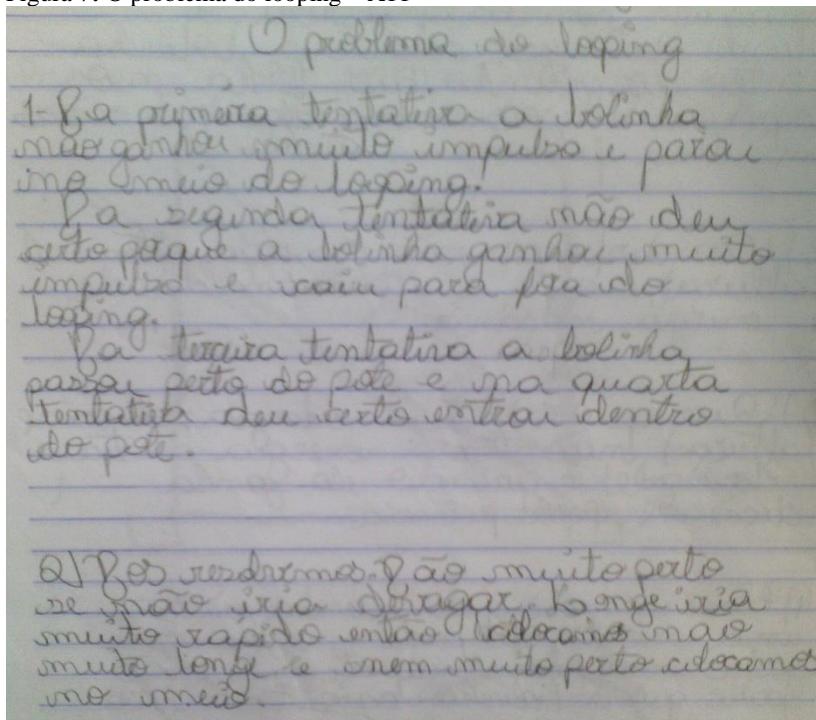 O problema do looping
1- Na primeira tentativa a bolinha
não ganhou muito impulso e parou
no meio do looping.
Na segunda tentativa não deu
certo porque a bolinha ganhou muito
impulso e caiu para fora do
looping.
Na terceira tentativa a bolinha
passou perto do pote e na quarta
tentativa deu certo entrou dentro
do pote.
2) Nos resolvemos. Não muito perto
se não iria devagar. Longe iria
muito rapido então colocamos nao
muito longe e nem muito perto colocamos
no meio.